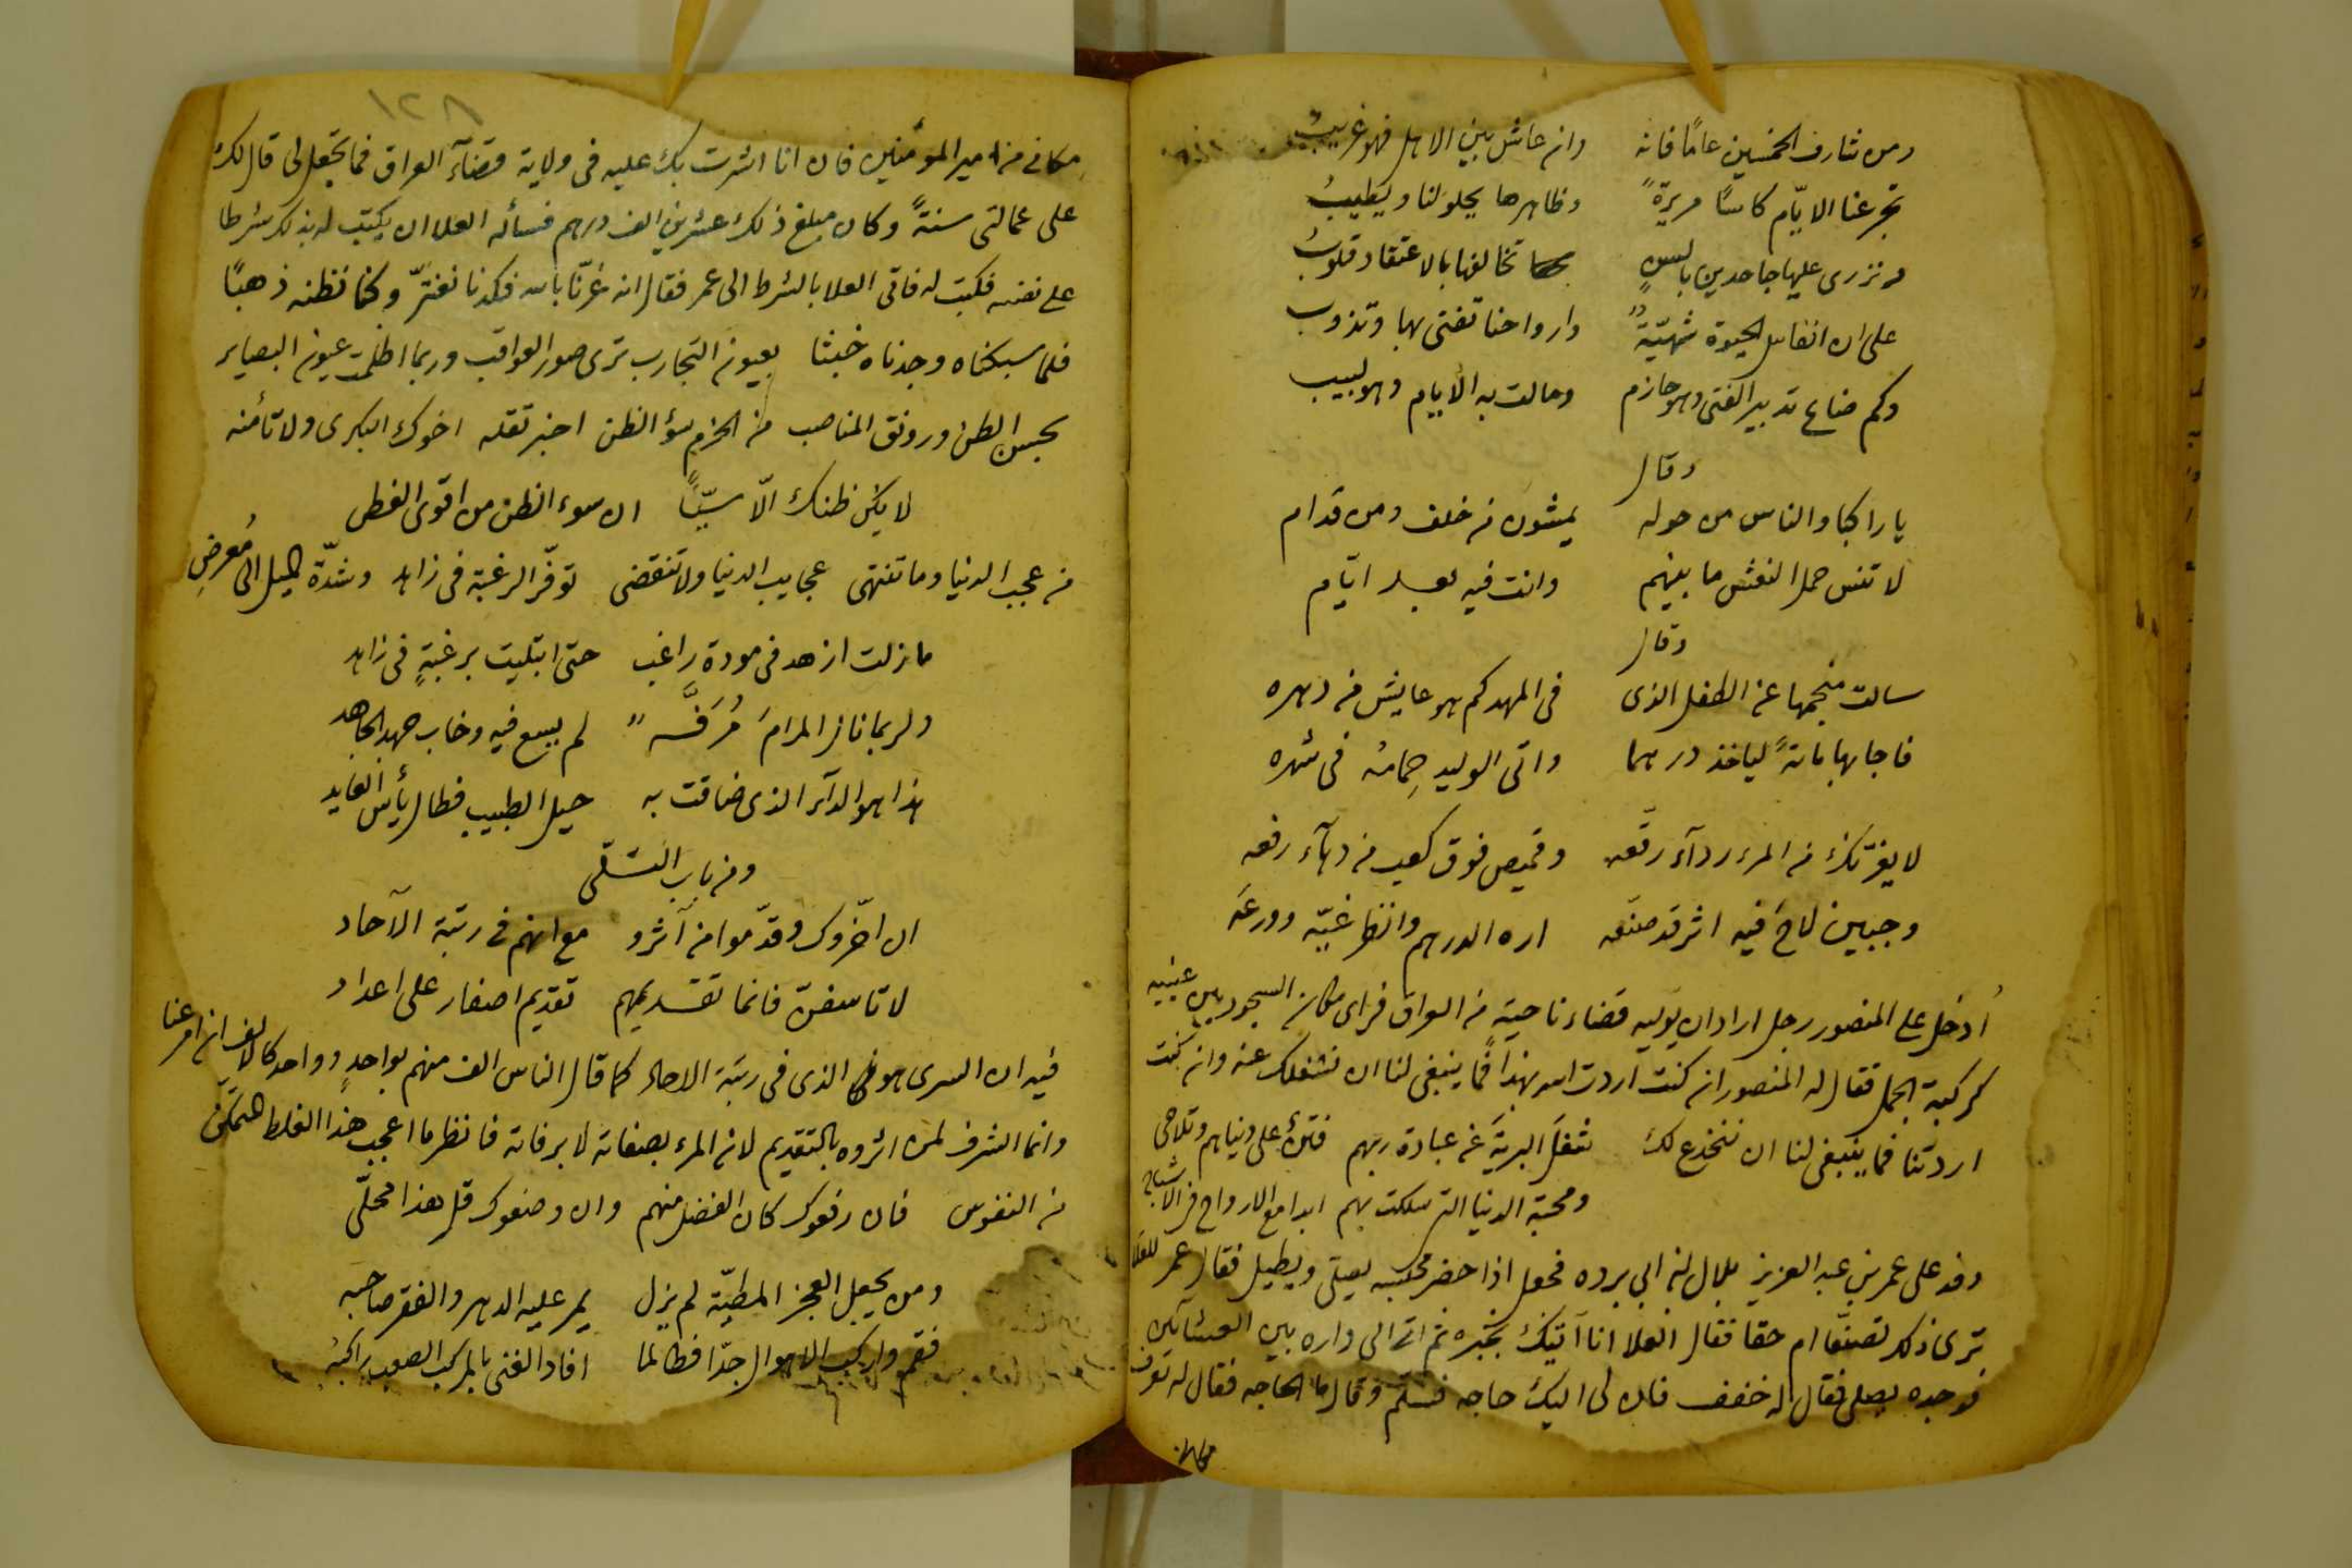 ومن شارف الخمسين عامًا فانه وان عاش بين الاهل فهو غريبُ
تجرعنا الايّام كاسًا مريرةً وظاهرها يحلو لنا ويَطيبُ
ونزرى عليها جاحدين بالسنٍ تخالفها بالاعتقاد قلوبُ
على ان انفاس الحيوة شهيّةٌ وارواحنا تفنى بها وتذوب
وكم ضاع تدبير الفتى وهو حازم وحالت به الايام وهو لبيب
وقال
يا راكبا والناس من حوله يمشون من خلف ومن قدام
لا تنس حمل النعش ما بينهم وانت فيه بعد ايّام
وقال
سالت منجمها عن الطفل الذى فى المهد كم هو عايش من دهره
فاجابها مائةً لياخذ درهما واتى الوليد حِمامهُ فى شهره
لا يغرّنك من المرء ردآء رقّعه وقميص فوق كعب من دهآء رفعه
وجبين لاحَ فيه اثر قد صنّعه اره الدرهم وانظر غيّه وورعَه
اُدخل على المنصور رجل اراد ان يوليه قضاء ناحية من العراق فراى مكان السجود بين عينيه
كركبة الجمل فقال له المنصور ان كنت اردت الله بهذا فما ينبغى لنا ان نشغلك عنه وان كنت
اردتنا فما ينبغى لنا ان ننخدع لك شغلَ البريةَ عن عبادة ربهم على دنياهم وتلاحى
ومحبة الدنيا التى سلكت بهم ابدا مع الارواح فى الاشباح
وفد على عمر بن عبد العزيز بلال بن ابى برده فجعل اذا حضر مجلسه يصلى ويطيل فقال عمر للعلا
ترى ذلك تصنّعا ام حقا فقال العلا انا آتيك بخبره ثم اتى الى داره بين العشآئين
فوجده يصلى فقال له خفف فان لى اليك حاجه فسلّم وقال ما الحاجه فقال له تعرف
مكانى
١٢٨
مكانى من امير المؤمنين فان انا اشرت بك عليه فى ولاية قضآء العراق فما تجعل لى قال لك
على عمالتى سنةً وكان مبلغ ذلك عشرين الف درهم فسأله العلا ان يكتب له بذلك شرطا
على نفسه فكتب له فاتى العلا بالشرط الى عمر فقال انه غرّنا بالله فكدنا نغترّ وكنا نظنه ذهبًا
فلما سبكناه وجدناه خبثا بعيون التجارب ترى صور العواقب وربما اظلمت عيون البصاير
بحسن الظن ورونق المناصب من الحزم سؤ الظن اخبر تقله اخوك البكرى ولا تأمنه
لا يكن ظنك الّا سيّئًا ان سوء الظن من اقوى الفطن
من عجب الدنيا وما تنتهى عجايب الدنيا ولا تنقضى توفّر الرغبة فى زاهد وشدّة الميل الى مُعرضِ
ما زلت ازهد فى مودة راغب حتى ابتليت برغبةٍ فى زاهد
ولربما نال المرامَ مُرَفَّهٌ لم يسع فيه وخاب جهد الجاهد
هذا هو الدآء الذى ضاقت به حيل الطبيب فطال يأس العايد
ومن باب التسَلّى
ان اخّروك وقدّموا من آثروا مع انهم فى رتبة الآحاد
لا تاسفنّ فانما تقديمهم تقديم اصفار على اعداد
فيه ان السرى هو الذى فى رتبة الاحاد كما قال الناس الف منهم بواحدٍ وواحد كالالف ان امر عنا
وانما الشرف لمن اثروه بالتقديم لان المرء بصفاته لا برفاته فانظر ما اعجب هذا الغلط المتمكّن
من النفوس فان رفعوك كان الفضل منهم وان وضعوك قل هذا محلّى
ومن يجعل العجز المطيّة لم يزل يمر عليه الدهر والفقر صاحبه
فقم واركب الاهوال جدّا فطالما افاد الغنى بالمركب الصعب راكبهُ